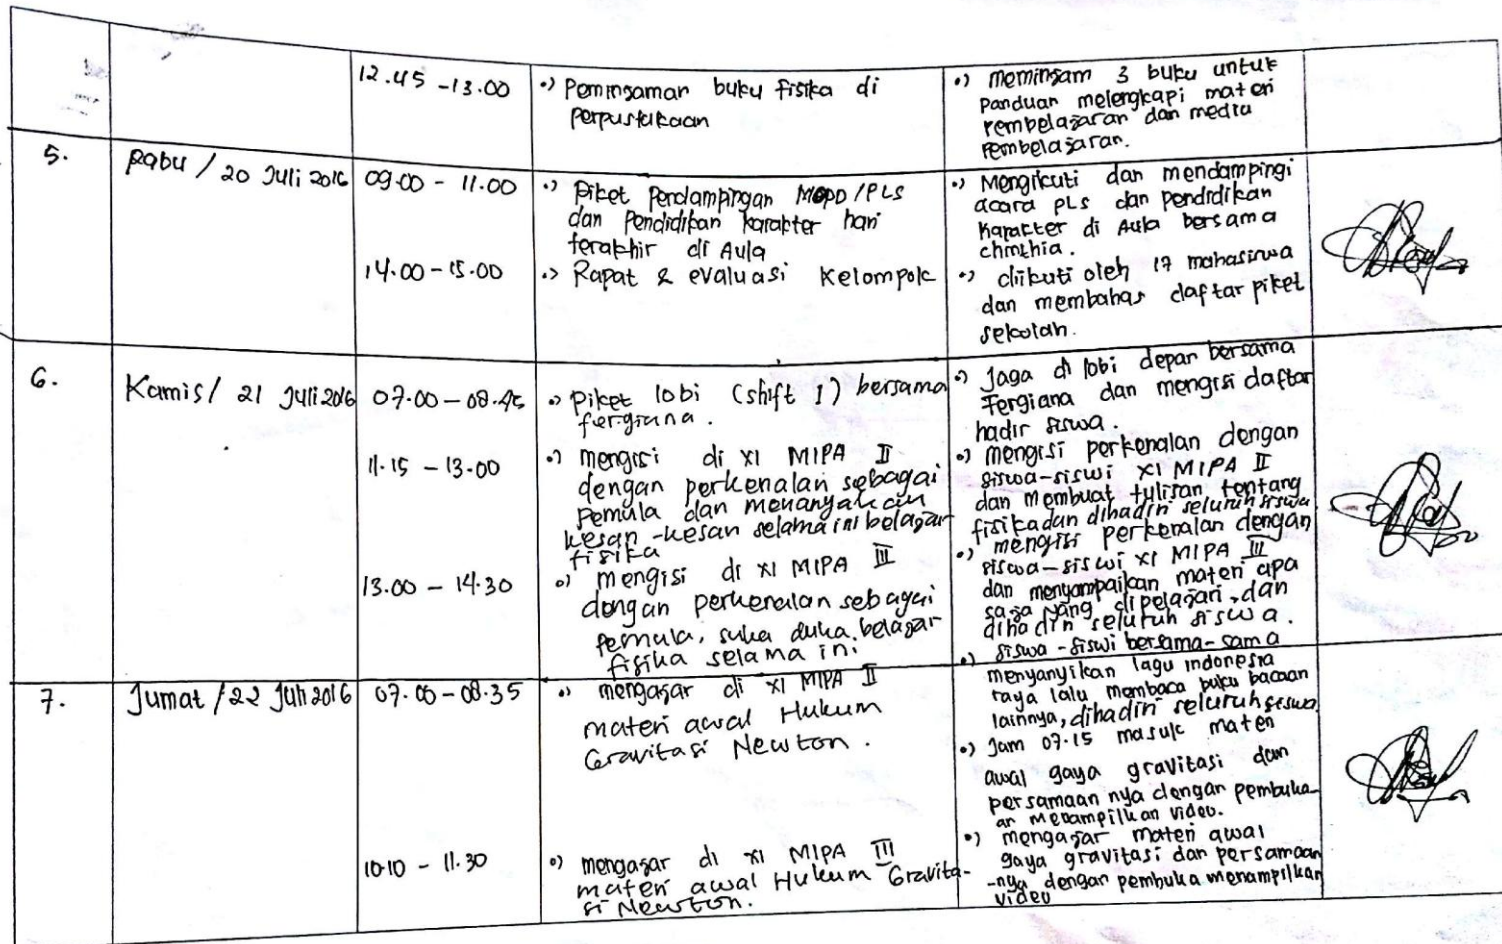 12.45 - 13.00
•) Peminjaman buku fisika di
perpustakaan
•) meminjam 3 buku untuk
panduan melengkapi materi
pembelajaran dan media
pembelajaran.
5.
Rabu / 20 Juli 2016
09.00 - 11.00
•) Piket Pendampingan MOPD/PLS
dan Pendidikan karakter hari
terakhir di Aula
•) Mengikuti dan mendampingi
acara PLS dan pendidikan
karakter di Aula bersama
chinthia.
14.00 - 15.00
•) Rapat & evaluasi Kelompok
•) diikuti oleh 17 mahasiswa
dan membahas daftar piket
sekolah.
6.
Kamis / 21 Juli 2016
07.00 - 08.45
•) Piket lobi (shift 1) bersama
fergiana.
•) Jaga di lobi depan bersama
Fergiana dan mengisi daftar
hadir siswa.
11.15 - 13.00
•) mengisi di XI MIPA II
dengan perkenalan sebagai
pemula dan menanyakan
kesan-kesan selama ini belajar
fisika
•) mengisi perkenalan dengan
siswa-siswi XI MIPA II
dan membuat tulisan tentang
fisika dan dihadiri seluruh siswa
13.00 - 14.30
•) mengisi di XI MIPA III
dengan perkenalan sebagai
pemula, suka duka belajar
fisika selama ini.
•) mengisi perkenalan dengan
siswa-siswi XI MIPA III
dan menyampaikan materi apa
saja yang dipelajari, dan
dihadiri seluruh siswa.
7.
Jumat / 22 Juli 2016
07.00 - 08.35
•) mengajar di XI MIPA II
materi awal Hukum
Gravitasi Newton.
•) siswa-siswi bersama-sama
menyanyikan lagu indonesia
raya lalu membaca buku bacaan
lainnya, dihadiri seluruh siswa.
•) Jam 07.15 masuk materi
awal gaya gravitasi dan
persamaan nya dengan pembuka-
an menampilkan video.
10.10 - 11.30
•) mengajar di XI MIPA III
materi awal Hukum Gravita-
si Newton.
•) mengajar materi awal
gaya gravitasi dan persamaan
-nya dengan pembuka menampilkan
video